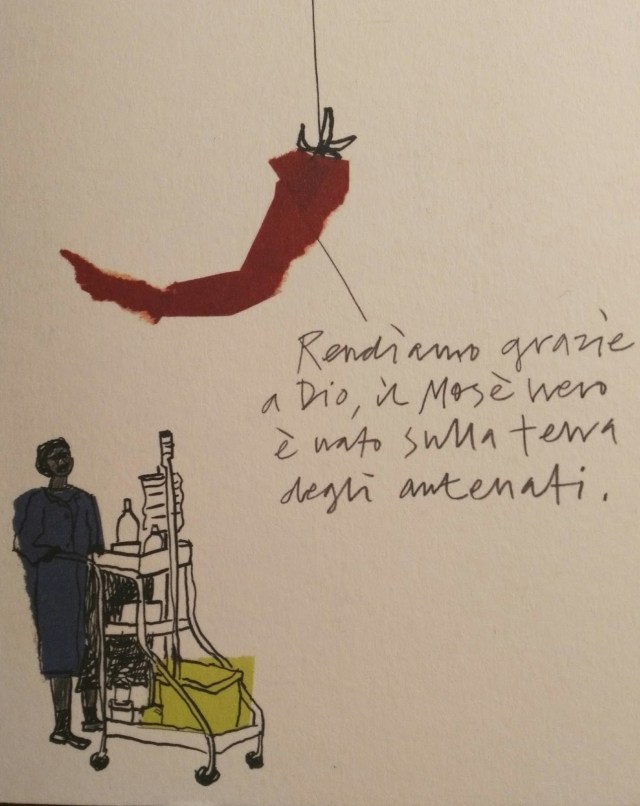 Rendiamo grazie
a Dio, il Mosè nero
è nato sulla terra
degli antenati.